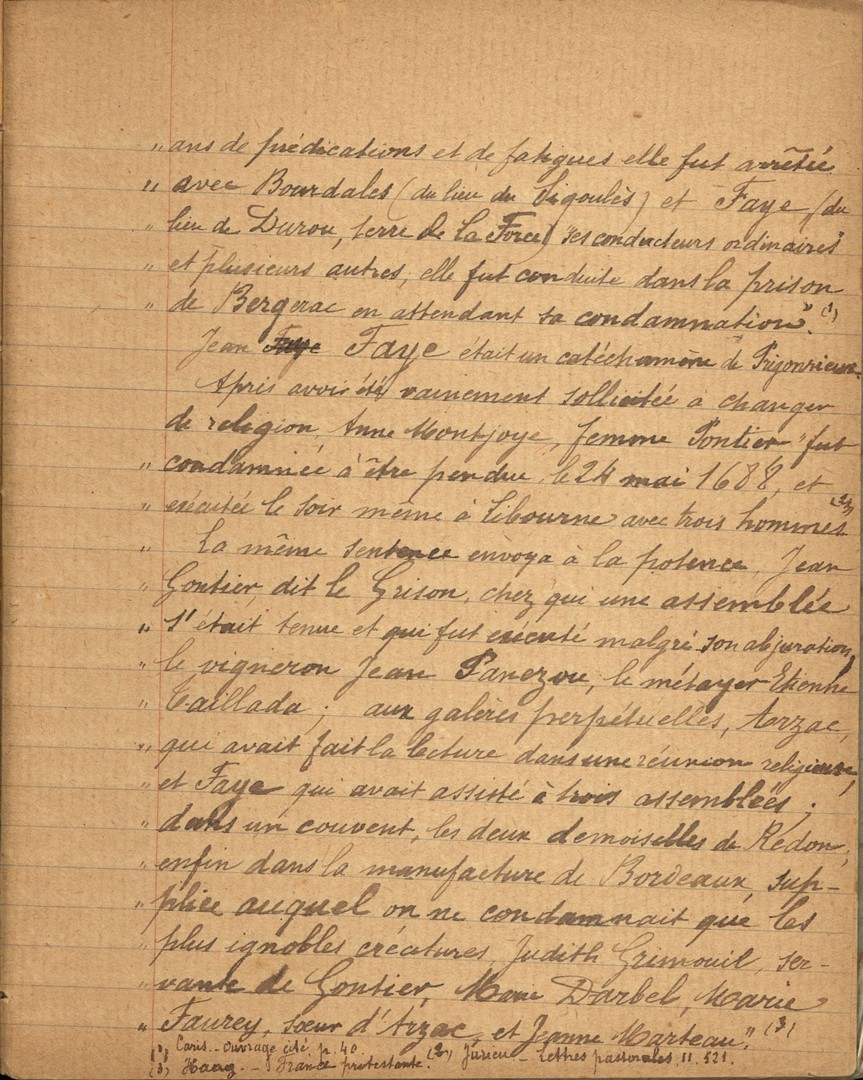 „ ans de prédications et de fatigues elle fut arrêtée
„ avec Bourdales (du lieu du Sigoulès) et Faye „(du
„ lieu de Durou, terre de La Force) "ses conducteurs ordinaires"
„ et plusieurs autres, elle fut conduite dans la prison
„ de Bergerac en attendant sa condamnation". (1)
Jean Faye était un catéchumène de Prigonrieux.
Après avoir été vainement sollicitée à changer
de religion, Anne Montjoye, femme Pontier "fut
„ condamnée à être pendue, le 24 mai 1688, et
„ exécutée le soir même à Libourne avec trois hommes (2)
„ La même sentence envoya à la potence, Jean
„ Gontier, dit le Grison, chez qui une assemblée
„ s'était tenue et qui fut exécuté malgré son abjuration,
„ le vigneron Jean Panezou, le métayer Etienne
„ Taillada ; aux galères perpétuelles, Arzac,
„ qui avait fait la lecture dans une réunion religieuse,
„ et Faye qui avait assisté à trois assemblées ;
„ dans un couvent, les deux demoiselles de Rédon ;
„ enfin dans la manufacture de Bordeaux, sup-
„ plice auquel on ne condamnait que les
„ plus ignobles créatures, Judith Grimouil, ser-
„ vante de Gontier, Darbel, Marie
„ Faurey, sœur d'Arzac, et Jeanne Marteau." (3)
(1) Caris. - Ouvrage cité, p. 40. (2) Jurieu - Lettres pastorales. II. 521.
(3) Haag. - France protestante.